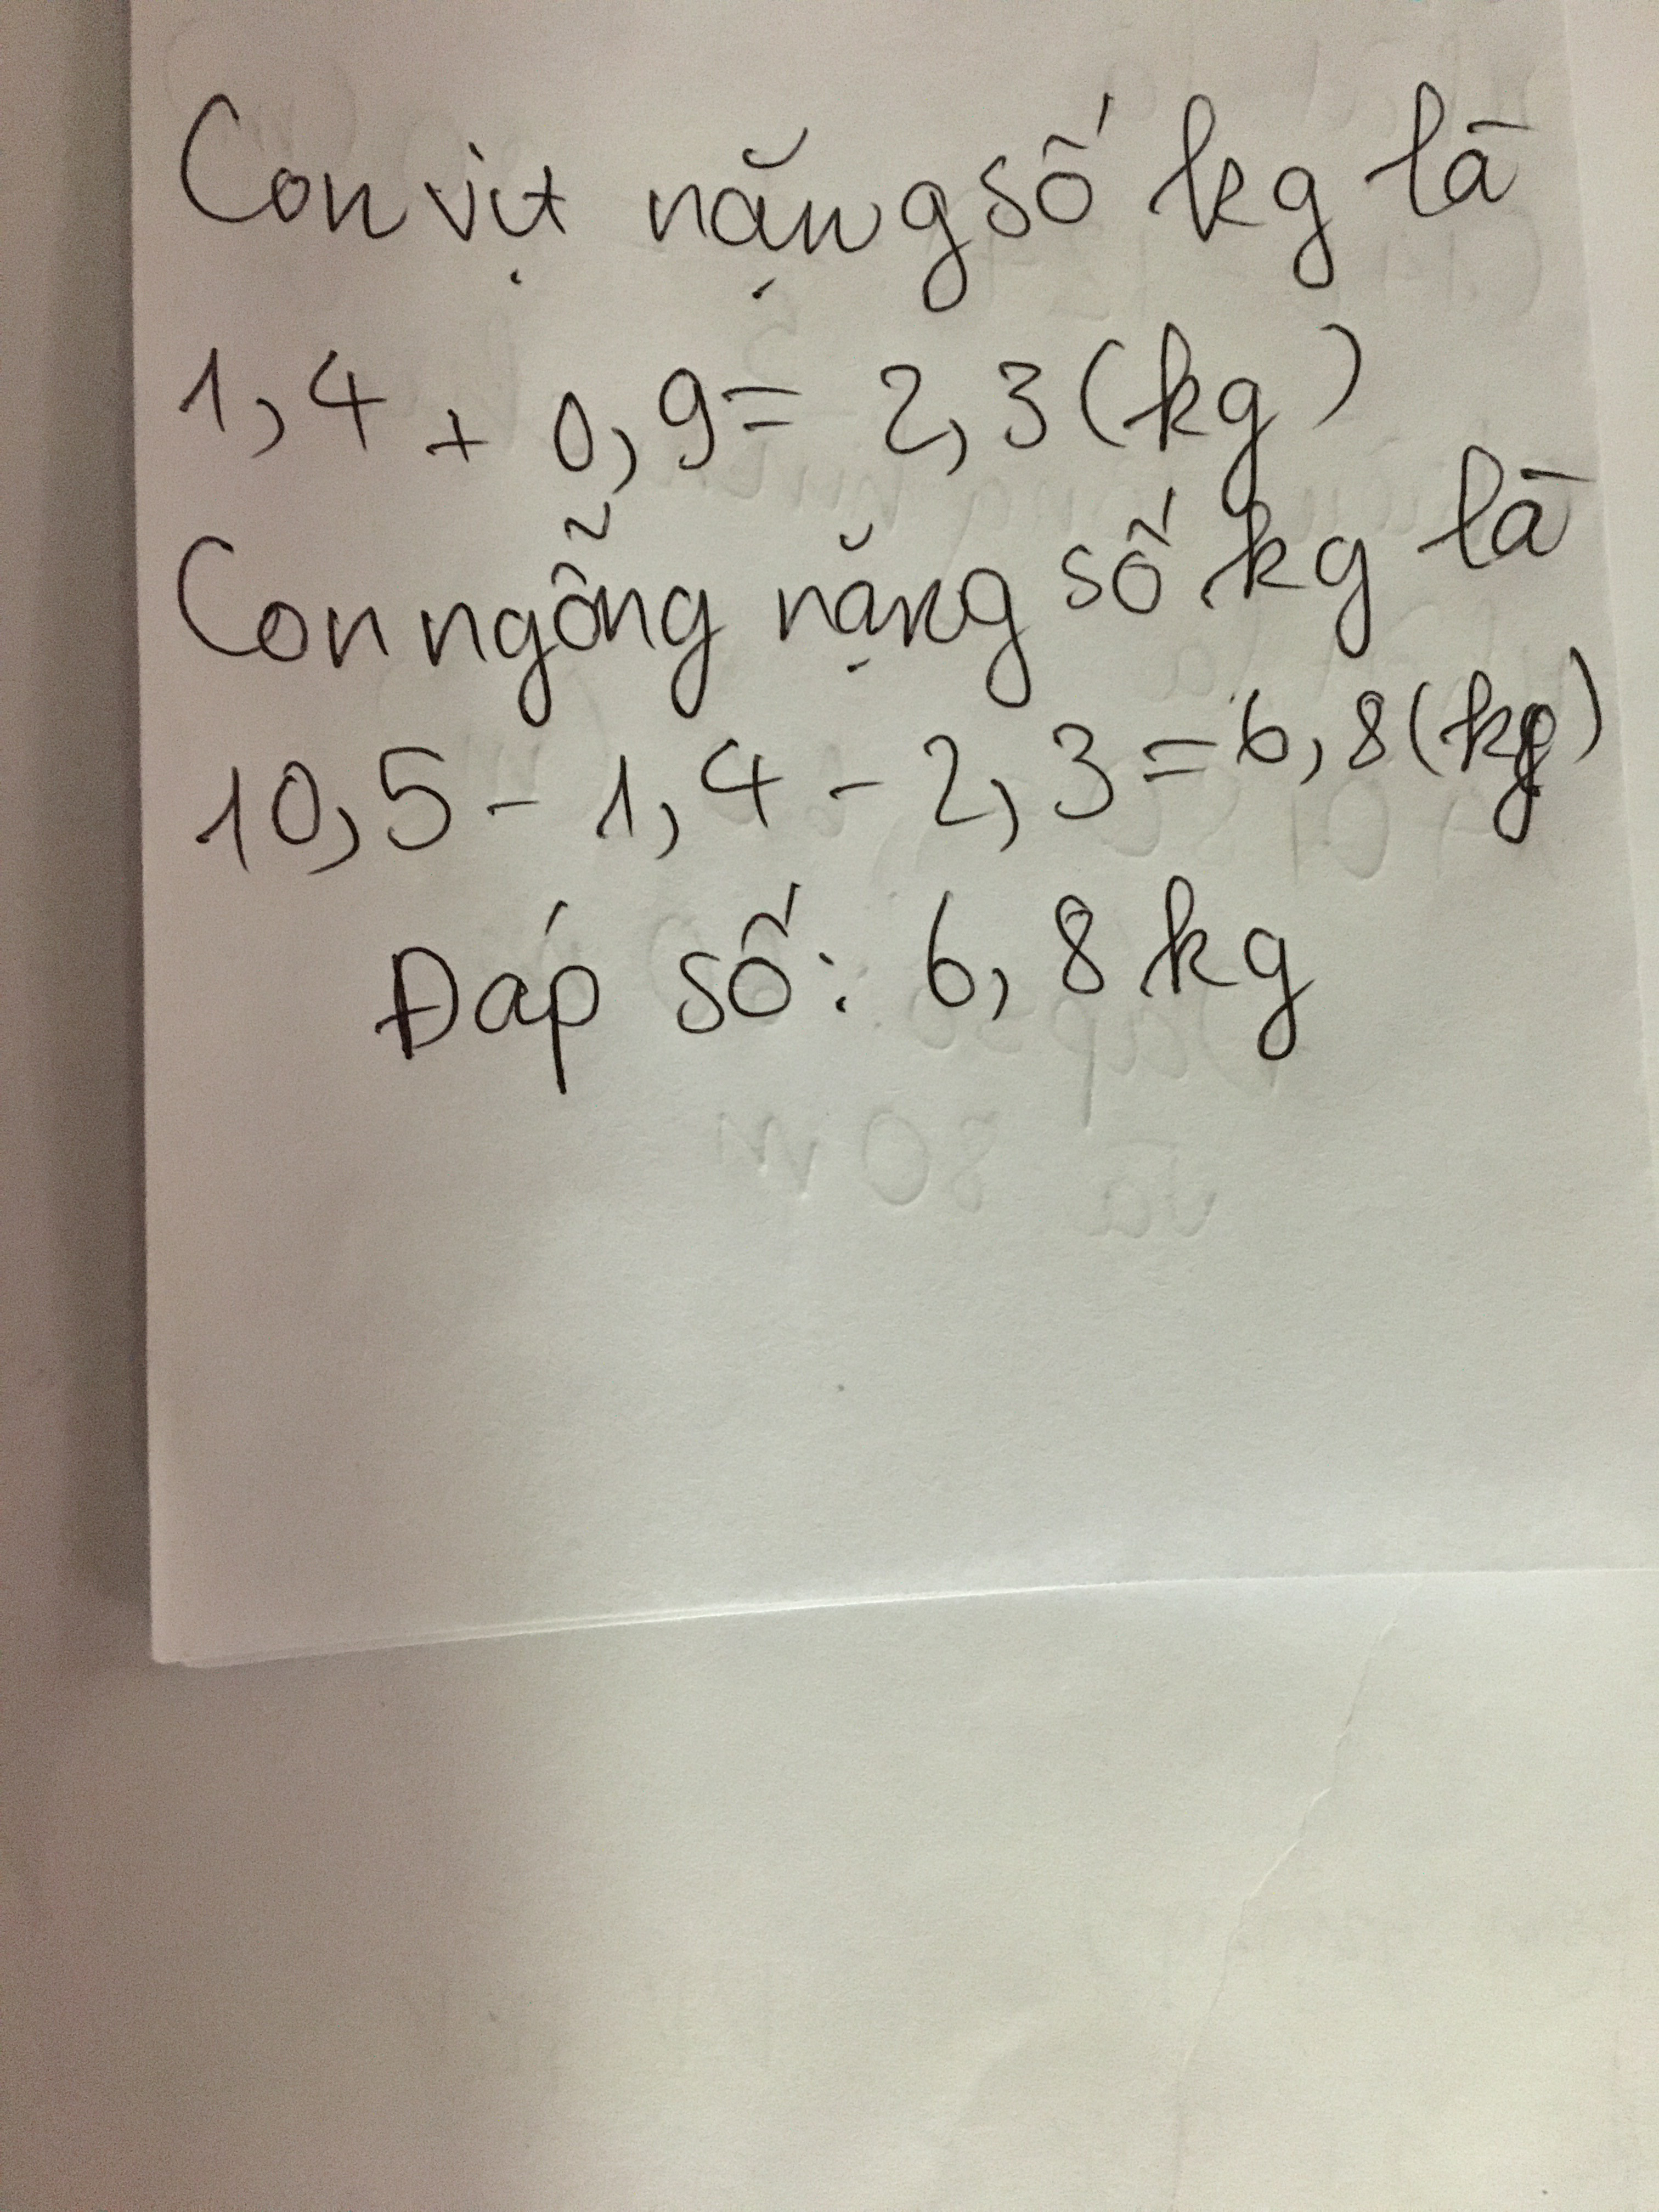 Con vịt nặng số kg là
1,4 + 0,9 = 2,3 (kg)
Con ngỗng nặng số kg là
10,5 - 1,4 - 2,3 = 6,8 (kg)
Đáp số: 6,8 kg